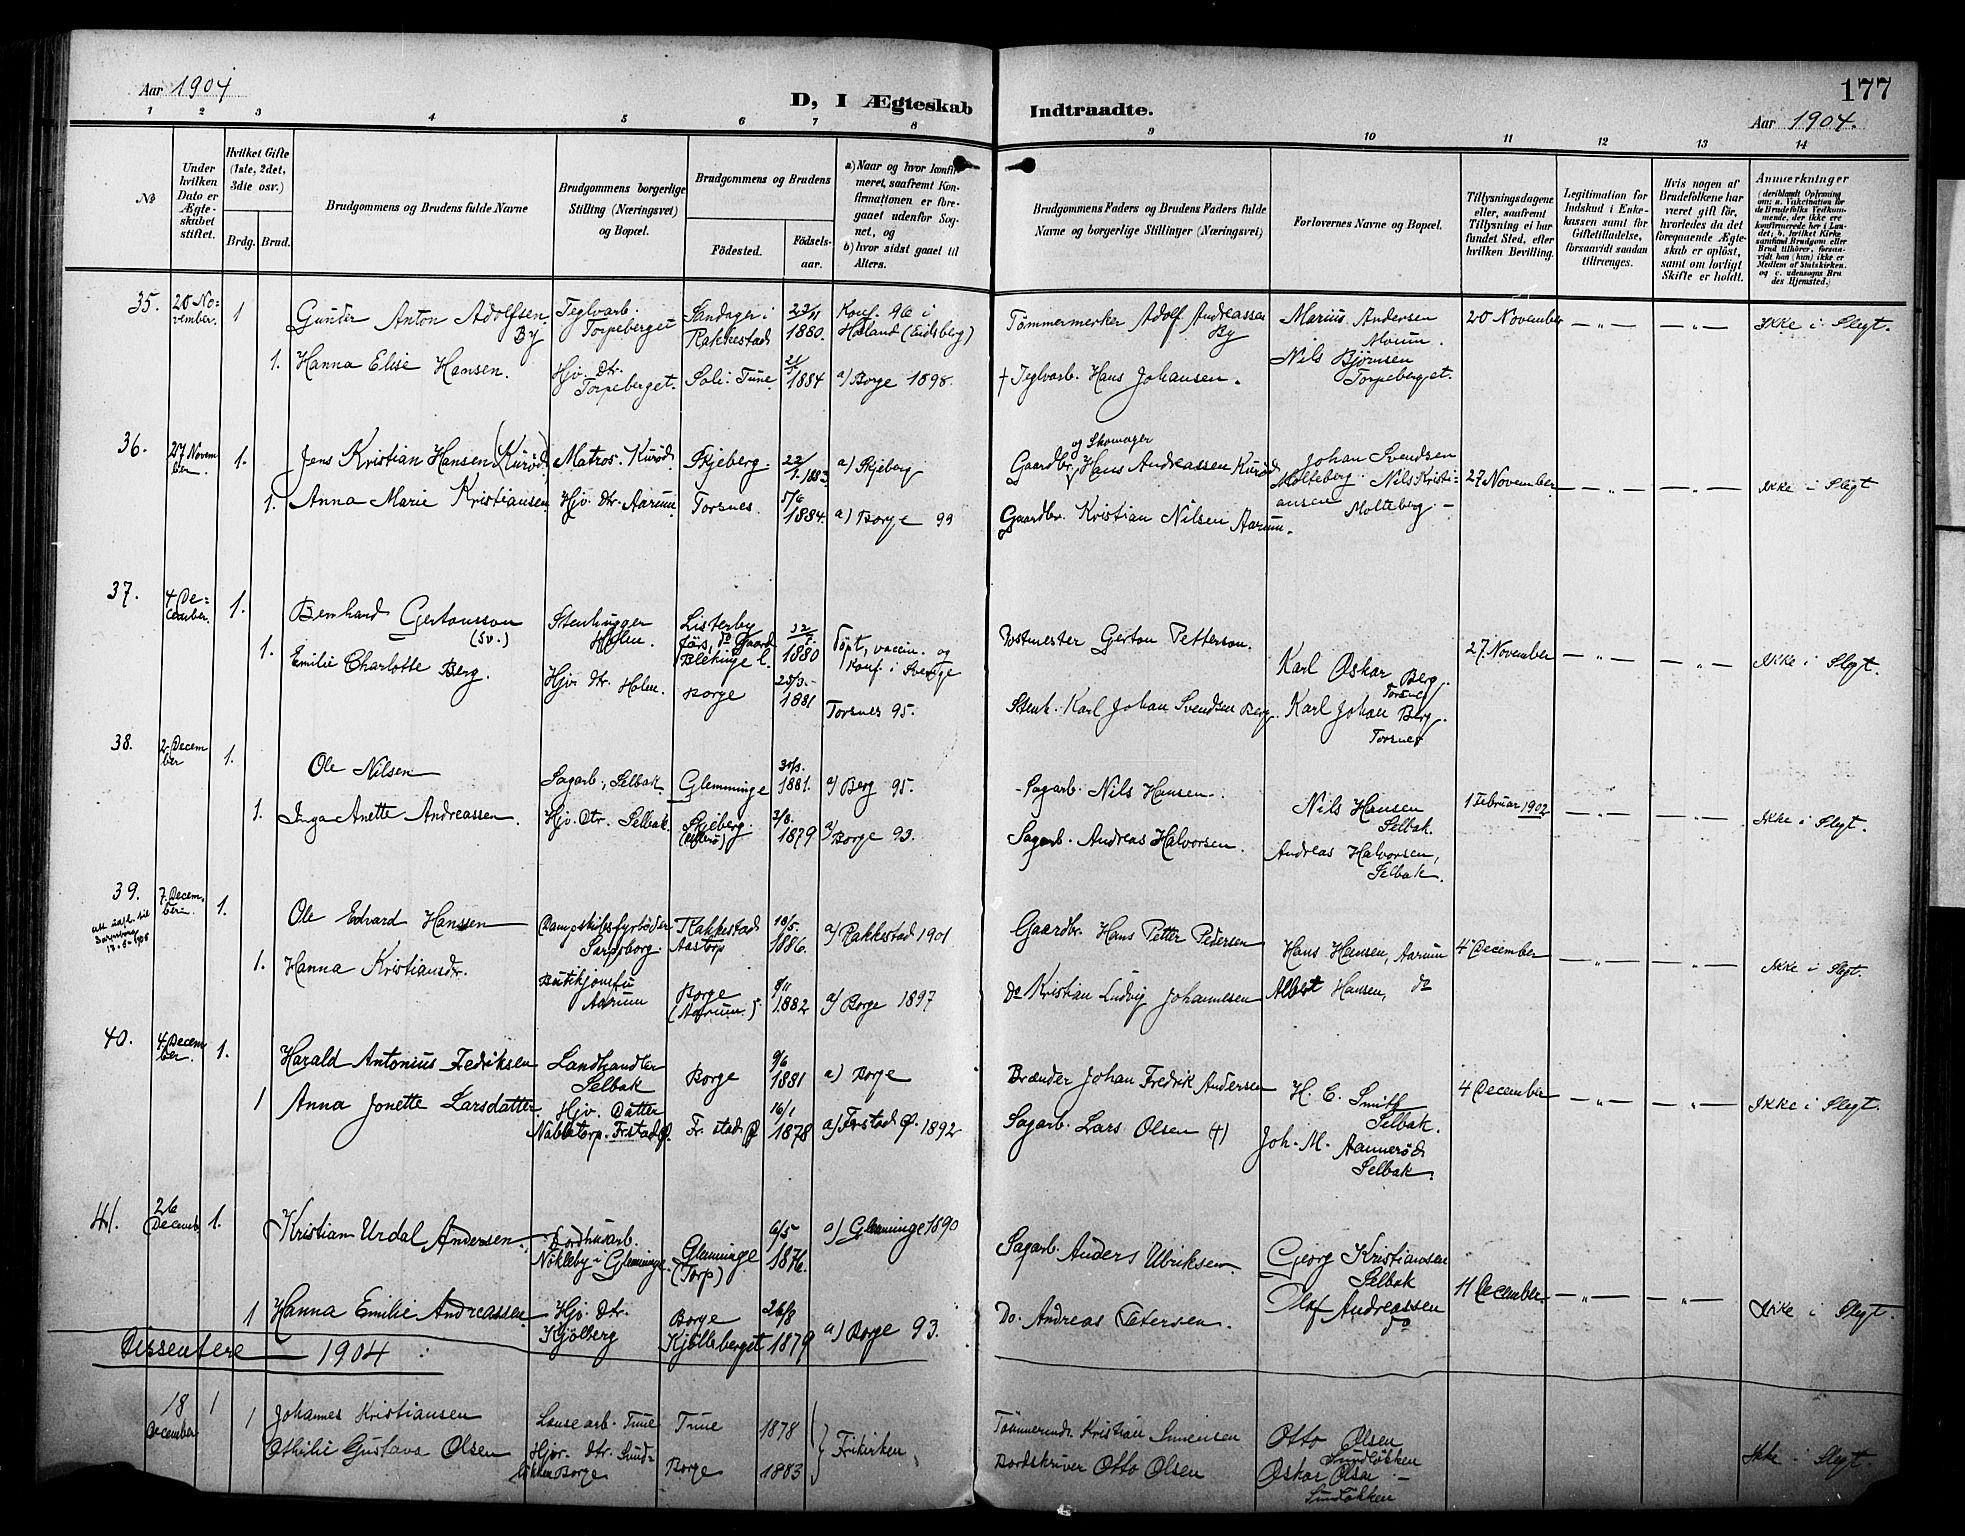 Aar 1904
D, I Ægteskab Indtraadte.
177
Aar 1904.
1 2 3 4 5 6 7 8 9 10 11 12 13 14
№
Under hvilken Dato er Ægteskabet stiftet.
Hvilket Gifte (1ste, 2det, 3die osv.)
Brdg. Brud.
Brudgommens og Brudens fulde Navne
Brudgommens borgerlige Stilling (Næringsvei) og Bopæl.
Brudgommens og Brudens
Födested. Födselsaar.
a) Naar og hvor konfirmeret, saafremt Konfirmationen er foregaaet udenfor Sognet, og
b) hvor sidst gaaet til Alters.
Brudgommens Faders og Brudens Faders fulde Navne og borgerlige Stillinger (Næringsvei)
Forlovernes Navne og Bopæl.
Tillysningsdagene eller, saafremt Tillysning ei har fundet Sted, efter hvilken Bevilling.
Legitimation for Indskud i Enkekassen samt for Giftetilladelse, forsaavidt saadan tiltrænges.
Hvis nogen af Brudefolkene har været gift för, hvorledes da det foregaaende Ægteskab er oplöst, samt om lovligt Skifte er holdt.
Anmærkninger
(deriblandt Oplysning om: a. Vakcination för de Brudefolks Vedkommende, der ikke ere konfirmerede her i Landet; b. hvilket Kirkesamfund Brudgom eller Brud tilhörer, forsaavidt han (hun) ikke er Medlem af Statskirken, og c. udensogns Brudes Hjemsted.)
35. 20 November. 1 Gunder Anton Adolfsen By Teglvarb. Torpeberget Sandager i Rakkestad 23/11 1880. Konf. 96 i Haland (Eidsberg) Tömmermerker Adolf Andreassen By Marius Andersen Moum. 20 November — „ — — „ — Ikke i Slegt.
1. Hanna Elise Hansen. Hjv. Dtr. Torpeberget. Soli: Tune 1884 a) Borge 1898. † Teglvarb. Hans Johansen. Nils Björnsen Torpeberget.
36. 27 November. 1. Jens Kristian Hansen (Kuröd) Matros. Kuröd Skjeberg 22/1 1883 a) Skjeberg Gaardbr. og Skomager Hans Andreassen Kuröd Johan Svendsen Molteberg. 27 November — „ — — „ — Ikke i Slegt
1. Anna Marie Kristiansen Hjv. Dtr. Aarum Torsnes. 5/6 1884. a) Borge 99 Gaardbr. Kristian Nilsen Aarum. Nils Kristiansen Molteberg —
37. 4 December. 1. Bernhard Gertonsson (Sv.) Stenhugger Holm. Listerby Blekinge l. 1880 Döpt, vaccin. og konf. i Sverige Postmester Gerton Petterson. Karl Oskar Berg. Torsnes 27. November — „ — — „ — Ikke i Slegt.
1. Emilie Charlotte Berg. Hjv. Dtr. Holm. Borge 1881 Torsnes 95. Stenh. Karl Johan Svendsen Berg. Karl Johan Berg. Torsnes
38. 2 December 1. Ole Nilsen Sagarb., Selbak. Glemminge 1881. a) Berg 95. Sagarb. Nils Hansen. Nils Hansen Selbak. 1 Februar 1902 — „ — — „ — Ikke i Slegt.
1. Inga Anette Andreassen. Hjv. Dtr. Selbak. Skjeberg 1879 a) Borge 93. Sagarb. Andreas Halvorsen. Andreas Halvorsen, Selbak.
39. 7. December. 1. Ole Edvard Hanssen Dampskibsfyrböder Sarpsborg. Rakkestad Aastorp 18/5 1886. a) Rakkestad 1901 Gaardbr. Hans Petter Pedersen Hans Hansen, Aarum 4 December — „ — — „ — Ikke i Slegt.
1. Hanna Kristiansdr. Butikjomfru Aarum Borge (Aarum.) 8/11 1882 a) Borge 1897 do Kristian Ludvig Johannesen Albert Hansen, do
40. 4. December. 1. Harald Antonius Fedriksen Landhandler Selbak Borge 9/6 1881 a) Borge Brænder Johan Fredrik Andersen H. C. Smith Selbak. 4 December — „ — — „ — Ikke i Slegt.
1 Anna Jonette Larsdatter. Hjv. Datter Nabbetorp. Fr.stad Ø. Fr. stad Ø 16/1 1878 a) Fr.stad Ø. 1892 Sagarb. Lars Olsen (†) Joh. M. Aannerød Selbak.
41. 26 December 1. Kristian Urdal Andersen. Nökleby i Glemminge. Glemminge (Torp) 6/5 1876. a) Glemminge 1890 Sagarb. Anders Ulriksen. Georg Kristiansen Selbak 11 December. — „ — — „ — Ikke i Slegt.
1 Hanna Emilie Andreassen Hjv. Dtr. Kjölberg Borge Kjölleberget 26/8 1879 a) Borge 93. Do. Andreas Petersen. Olaf Andreassen do
Dissentere 1904:
18 December 1 Johannes Kristiansen Tune Tune 1878 Kristian Simensen Otto Olsen Sundlökken
1 Othilie Gustava Olsen Hjv. Dtr. Sundlökken Borge Borge 1883 Frikirken Bordskriver Otto Olsen Oskar Olsen — Sundlökken Ikke i Slegt.